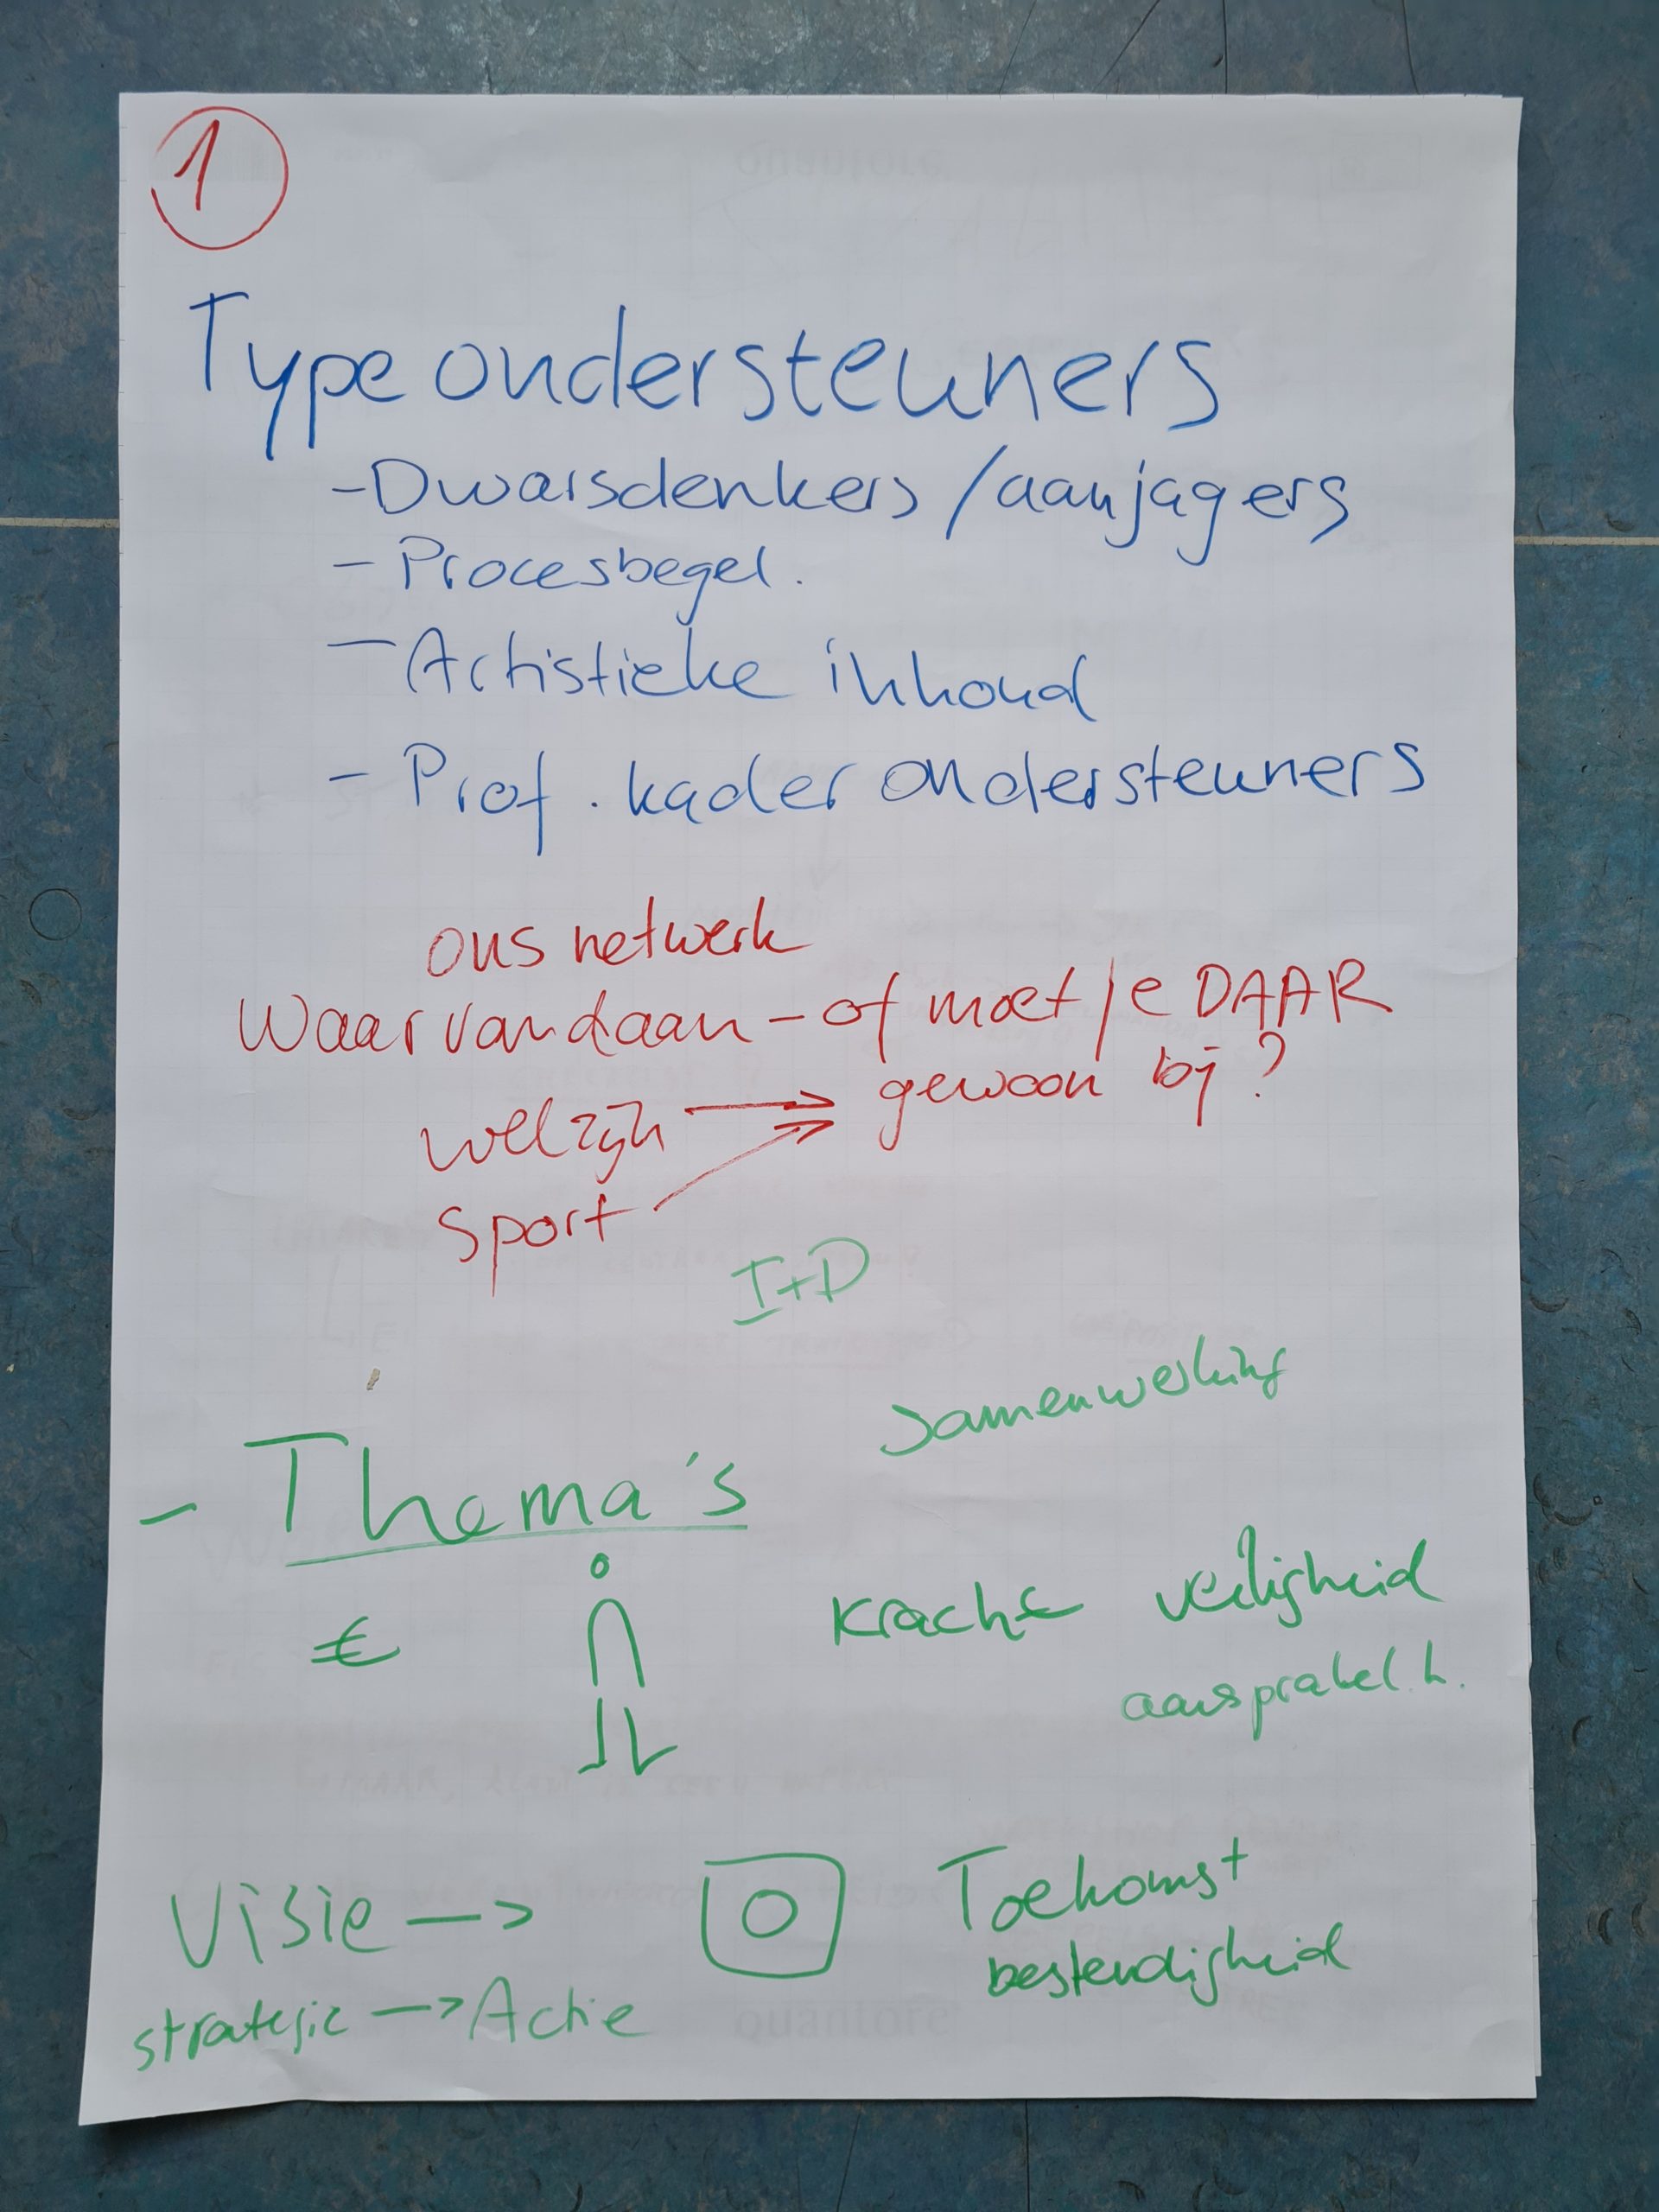 1
Type ondersteuners
- Dwarsdenkers / aanjagers
- Procesbegel.
- Artistieke inhoud
- Prof. kader ondersteuners
ons netwerk
Waar vandaan - of moet je DAAR
gewoon bij?
welzijn →
sport →
I+D
Samenwerking
- Thema's
€
Kracht veiligheid
aansprakel.h.
Visie -->
Toekomst
bestendigheid
strategie --> Actie